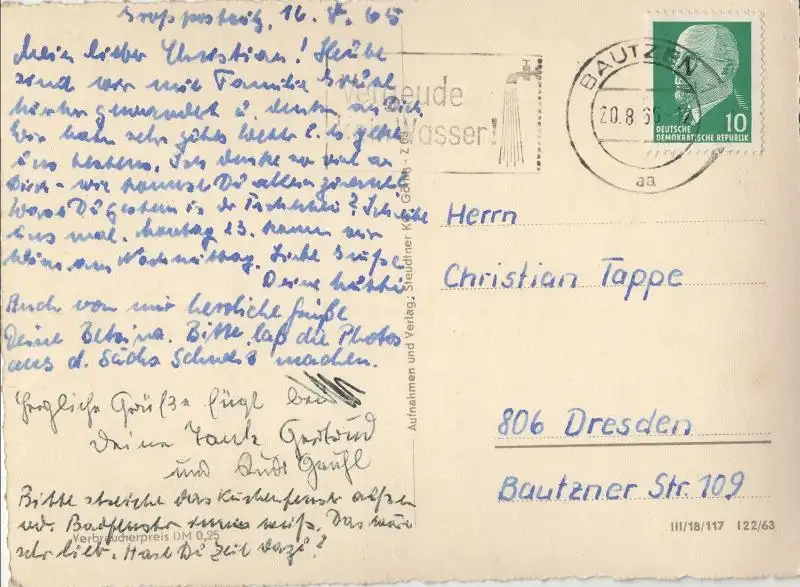 Grosspostwitz, 16. 8. 65
Mein lieber Christian! Heute
sind wir mit Familie Grühl
hierher gewandert u. denken an Dich.
Wir haben sehr gutes Wetter u. es geht
uns bestens. Ich denke so viel an
Dich - wie kommst Du allein zurecht
Warst Du gestern in der ? Schreibe
uns mal. Montag 23. kommen wir
heim, am Nachmittag. Liebe Grüße
Deine Mutti
Auch von mir herzliche Grüße
Deine Bettina. Bitte, laß die Photos
aus d. Sächs Schweiz machen.
Herzliche Grüße fügt bei
Deine Tante Gertrud
und Grühl
Bitte streiche das Küchenfenster außen
und. Badfenster weiß. Das wäre
sehr lieb. Hast Du Zeit dazu?
Verbraucherpreis DM 0,25
Aufnahmen und Verlag: Steudtner KG.
vergeude
kein Wasser!
BAUTZEN
20.8.65
aa
DEUTSCHE
DEMOKRATISCHE REPUBLIK
10
Herrn
Christian Tappe
806 Dresden
Bautzner Str. 109
III/18/117 I 22/63